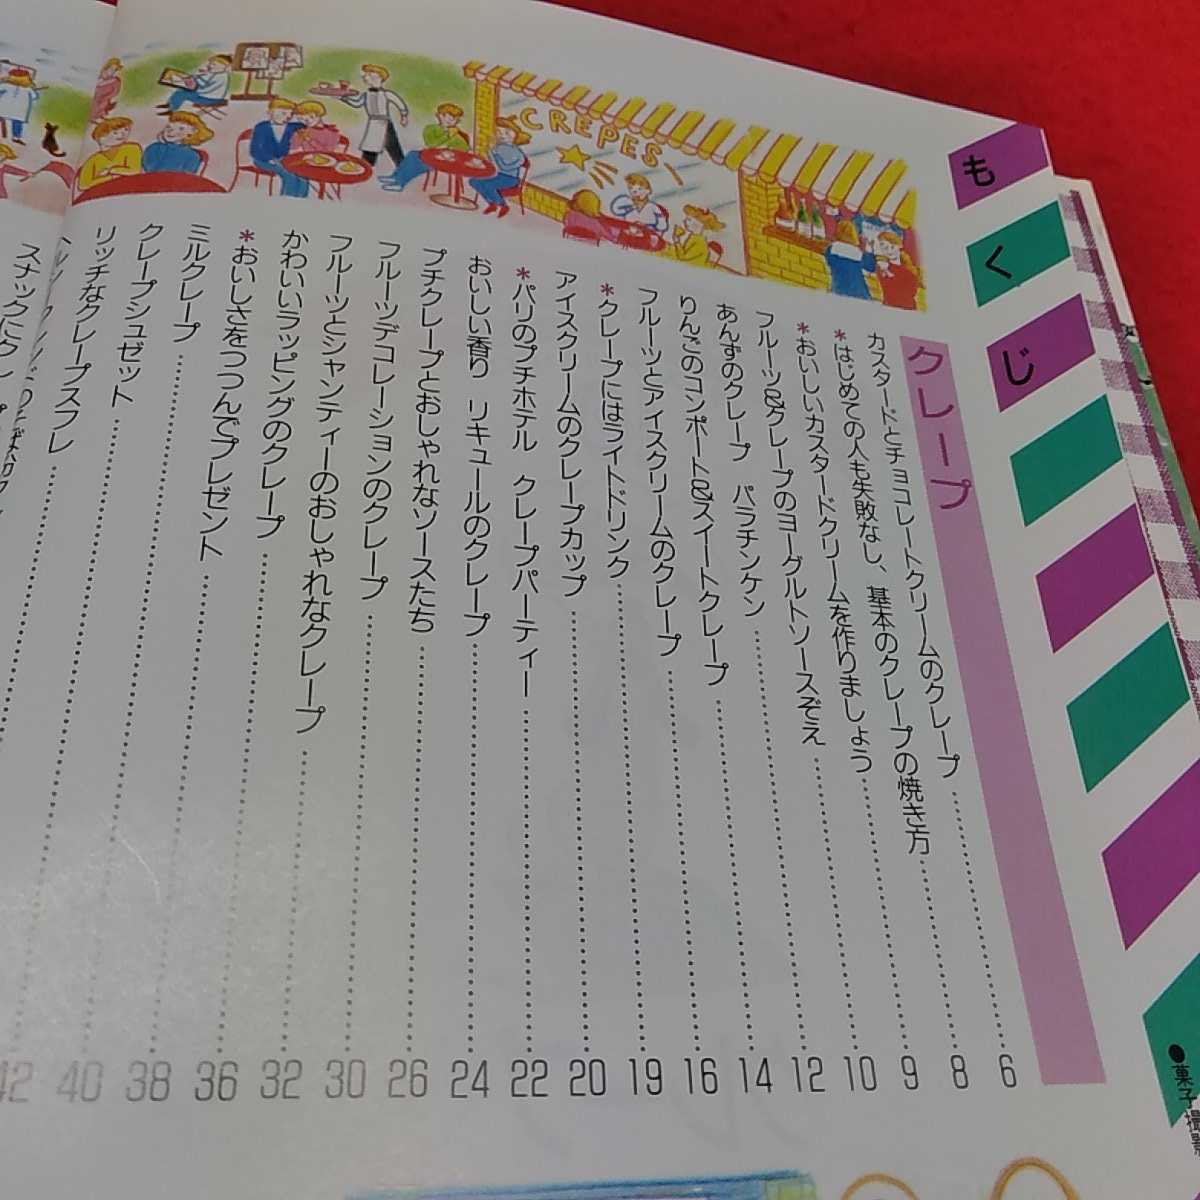 もくじ
クレープ
カスタードとチョコレートクリームのクレープ……6
*はじめての人も失敗なし、基本のクレープの焼き方……8
*おいしいカスタードクリームを作りましょう……9
フルーツ&クレープのヨグルトソースぞえ……10
あんずのクレープ パラチンケン……12
りんごのコンポート&スイートクレープ……14
フルーツとアイスクリームのクレープ……16
*クレープにはライトドリンク……19
アイスクリームのクレープカップ……20
*パリのプチホテル クレープパーティー……22
おいしい香り リキュールのクレープ……24
プチクレープとおしゃれなソースたち……26
フルーツデコレーションのクレープ……30
フルーツとシャンティーのおしゃれなクレープ……32
かわいいラッピングのクレープ……36
*おいしさをつつんでプレゼント……38
ミルクレープ……40
クレープシュゼット……42
リッチなクレープスフレ……
スナックにク
CREPES
●菓子撮影